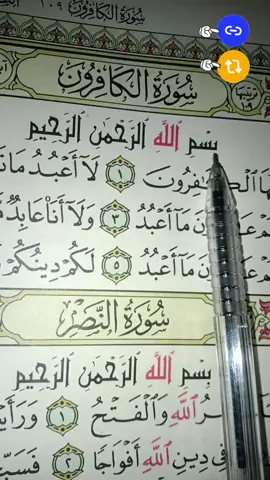 سُورَةُ الكَافِرُون ١٠٩
سُورَةُ الكَافِرُون
ترتيبها
١٠٩
بِسْمِ ٱللَّهِ ٱلرَّحْمَٰنِ ٱلرَّحِيمِ
ٱلْكَٰفِرُونَ ١ لَآ أَعْبُدُ مَا
مَآ أَعْبُدُ ٣ وَلَآ أَنَا۠ عَابِدٌ
مَآ أَعْبُدُ ٥ لَكُمْ دِينُكُمْ
سُورَةُ النَّصْر
بِسْمِ ٱللَّهِ ٱلرَّحْمَٰنِ ٱلرَّحِيمِ
ٱللَّهِ وَٱلْفَتْحُ ١ وَرَأَيْ
فِي دِينِ ٱللَّهِ أَفْوَاجًا ٢ فَسَبِّ